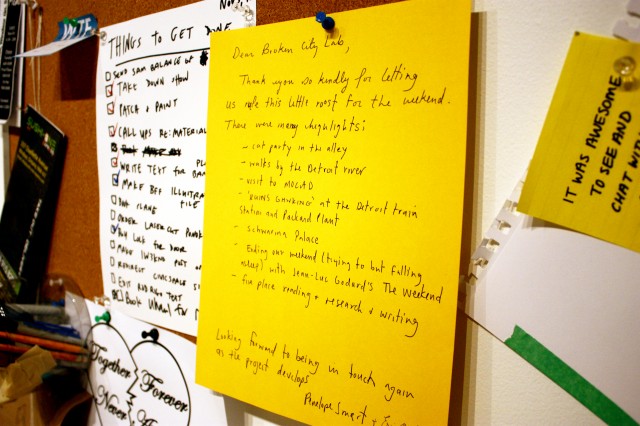 Nov
THINGS TO GET DONE
SEND SAM BALANCE OF
TAKE DOWN SHOW
PATCH & PAINT
CALL UPS RE: MATERIAL
WRITE TEXT FOR
MAKE BFF ILLUSTRAT
FILE
ORDER LASERCUT
FOR DOOR
MAKE INTEND POST
EDIT AND TEXT
Book
Together
Forever
Never
Dear Broken City Lab,
Thank you so kindly for letting
us this little roost for the weekend.
There were many highlights:
- cat party in the alley
- walks by the Detroit river
- visit to MOCAD
- 'RUINS GAWKING' at the Detroit Train
Station and Packard Plant
- Schwarma Palace
- Ending our weekend (trying to but falling
asleep) with Jean-Luc Godard's The Weekend
- fire place reading + research + writing
Looking forward to being in touch again
as the project develops
Penelope Smart +
IT WAS AWESOME
TO SEE AND
CHAT